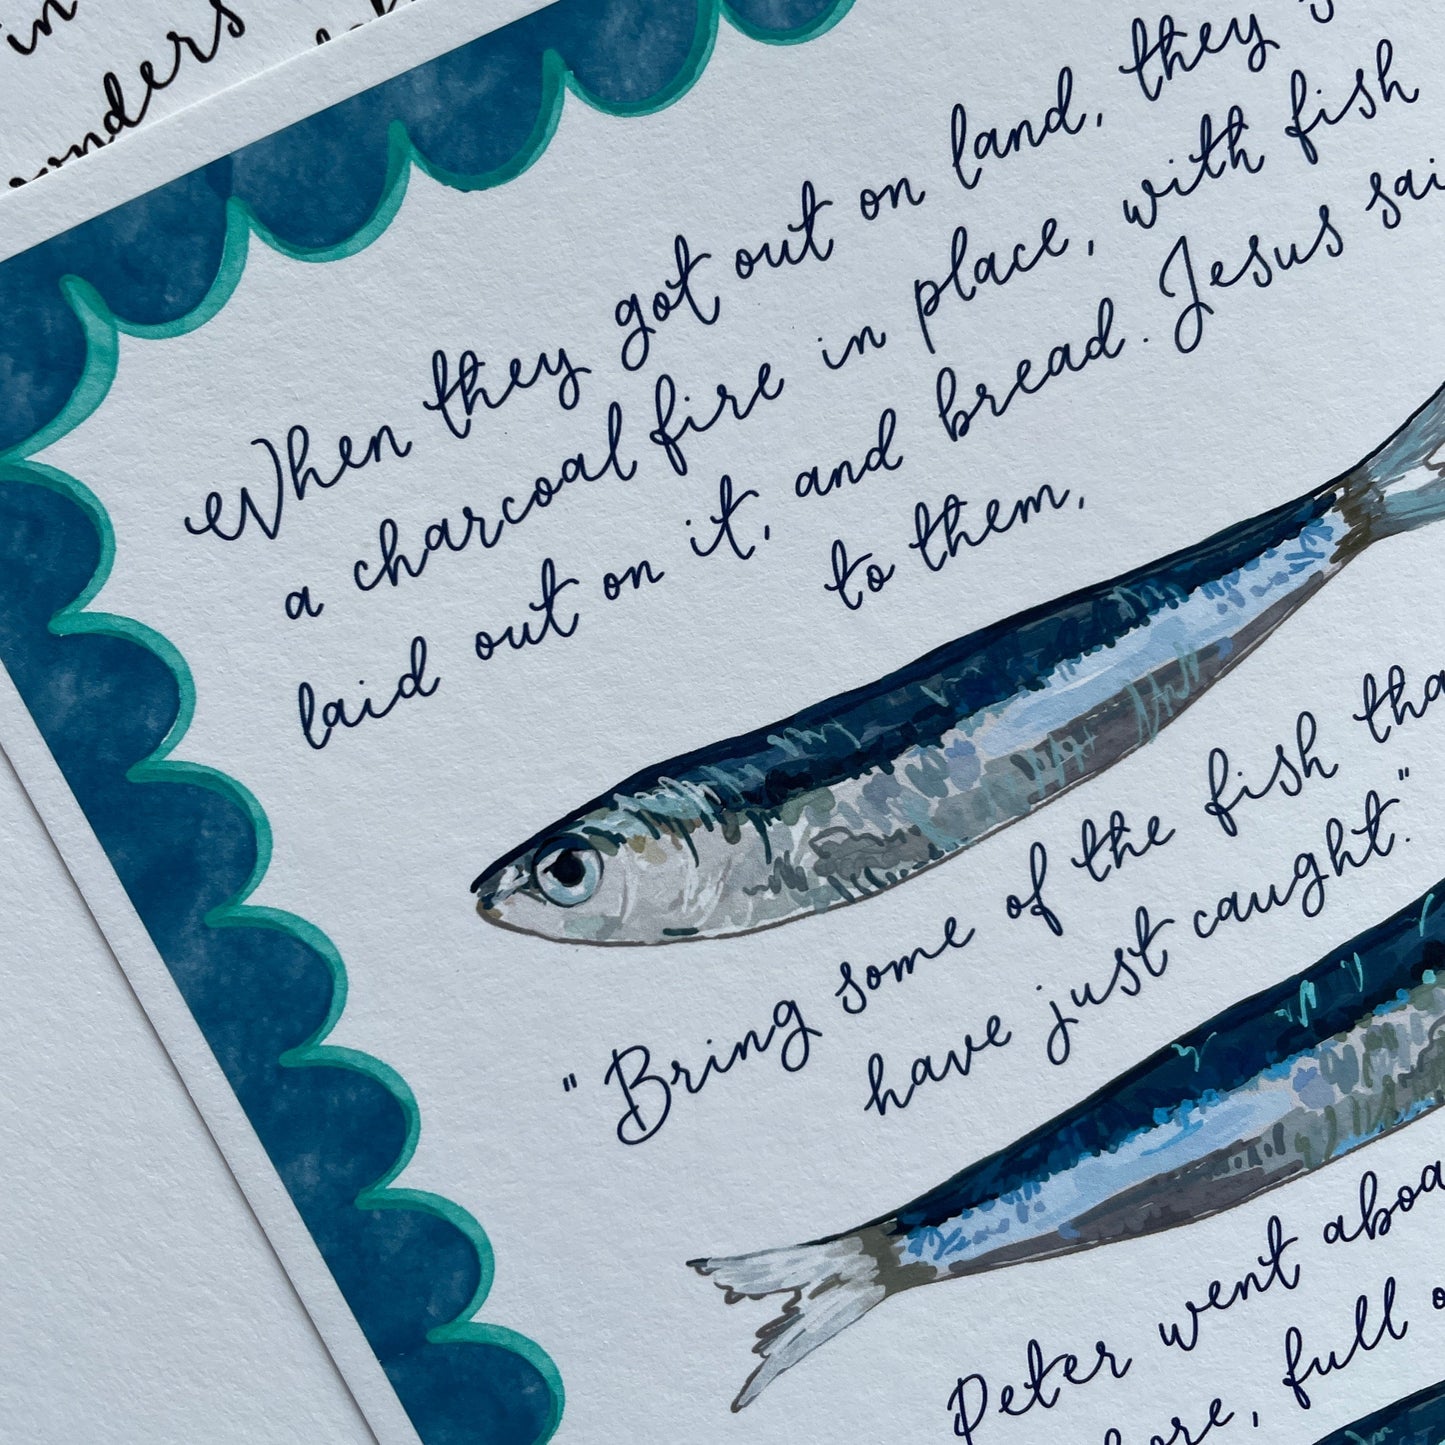 in
wonders
When they got out on land, they
a charcoal fire in place, with fish
laid out on it, and bread. Jesus sai
to them,
"Bring some of the fish tha
have just caught."
Peter went aboa
ore, full o